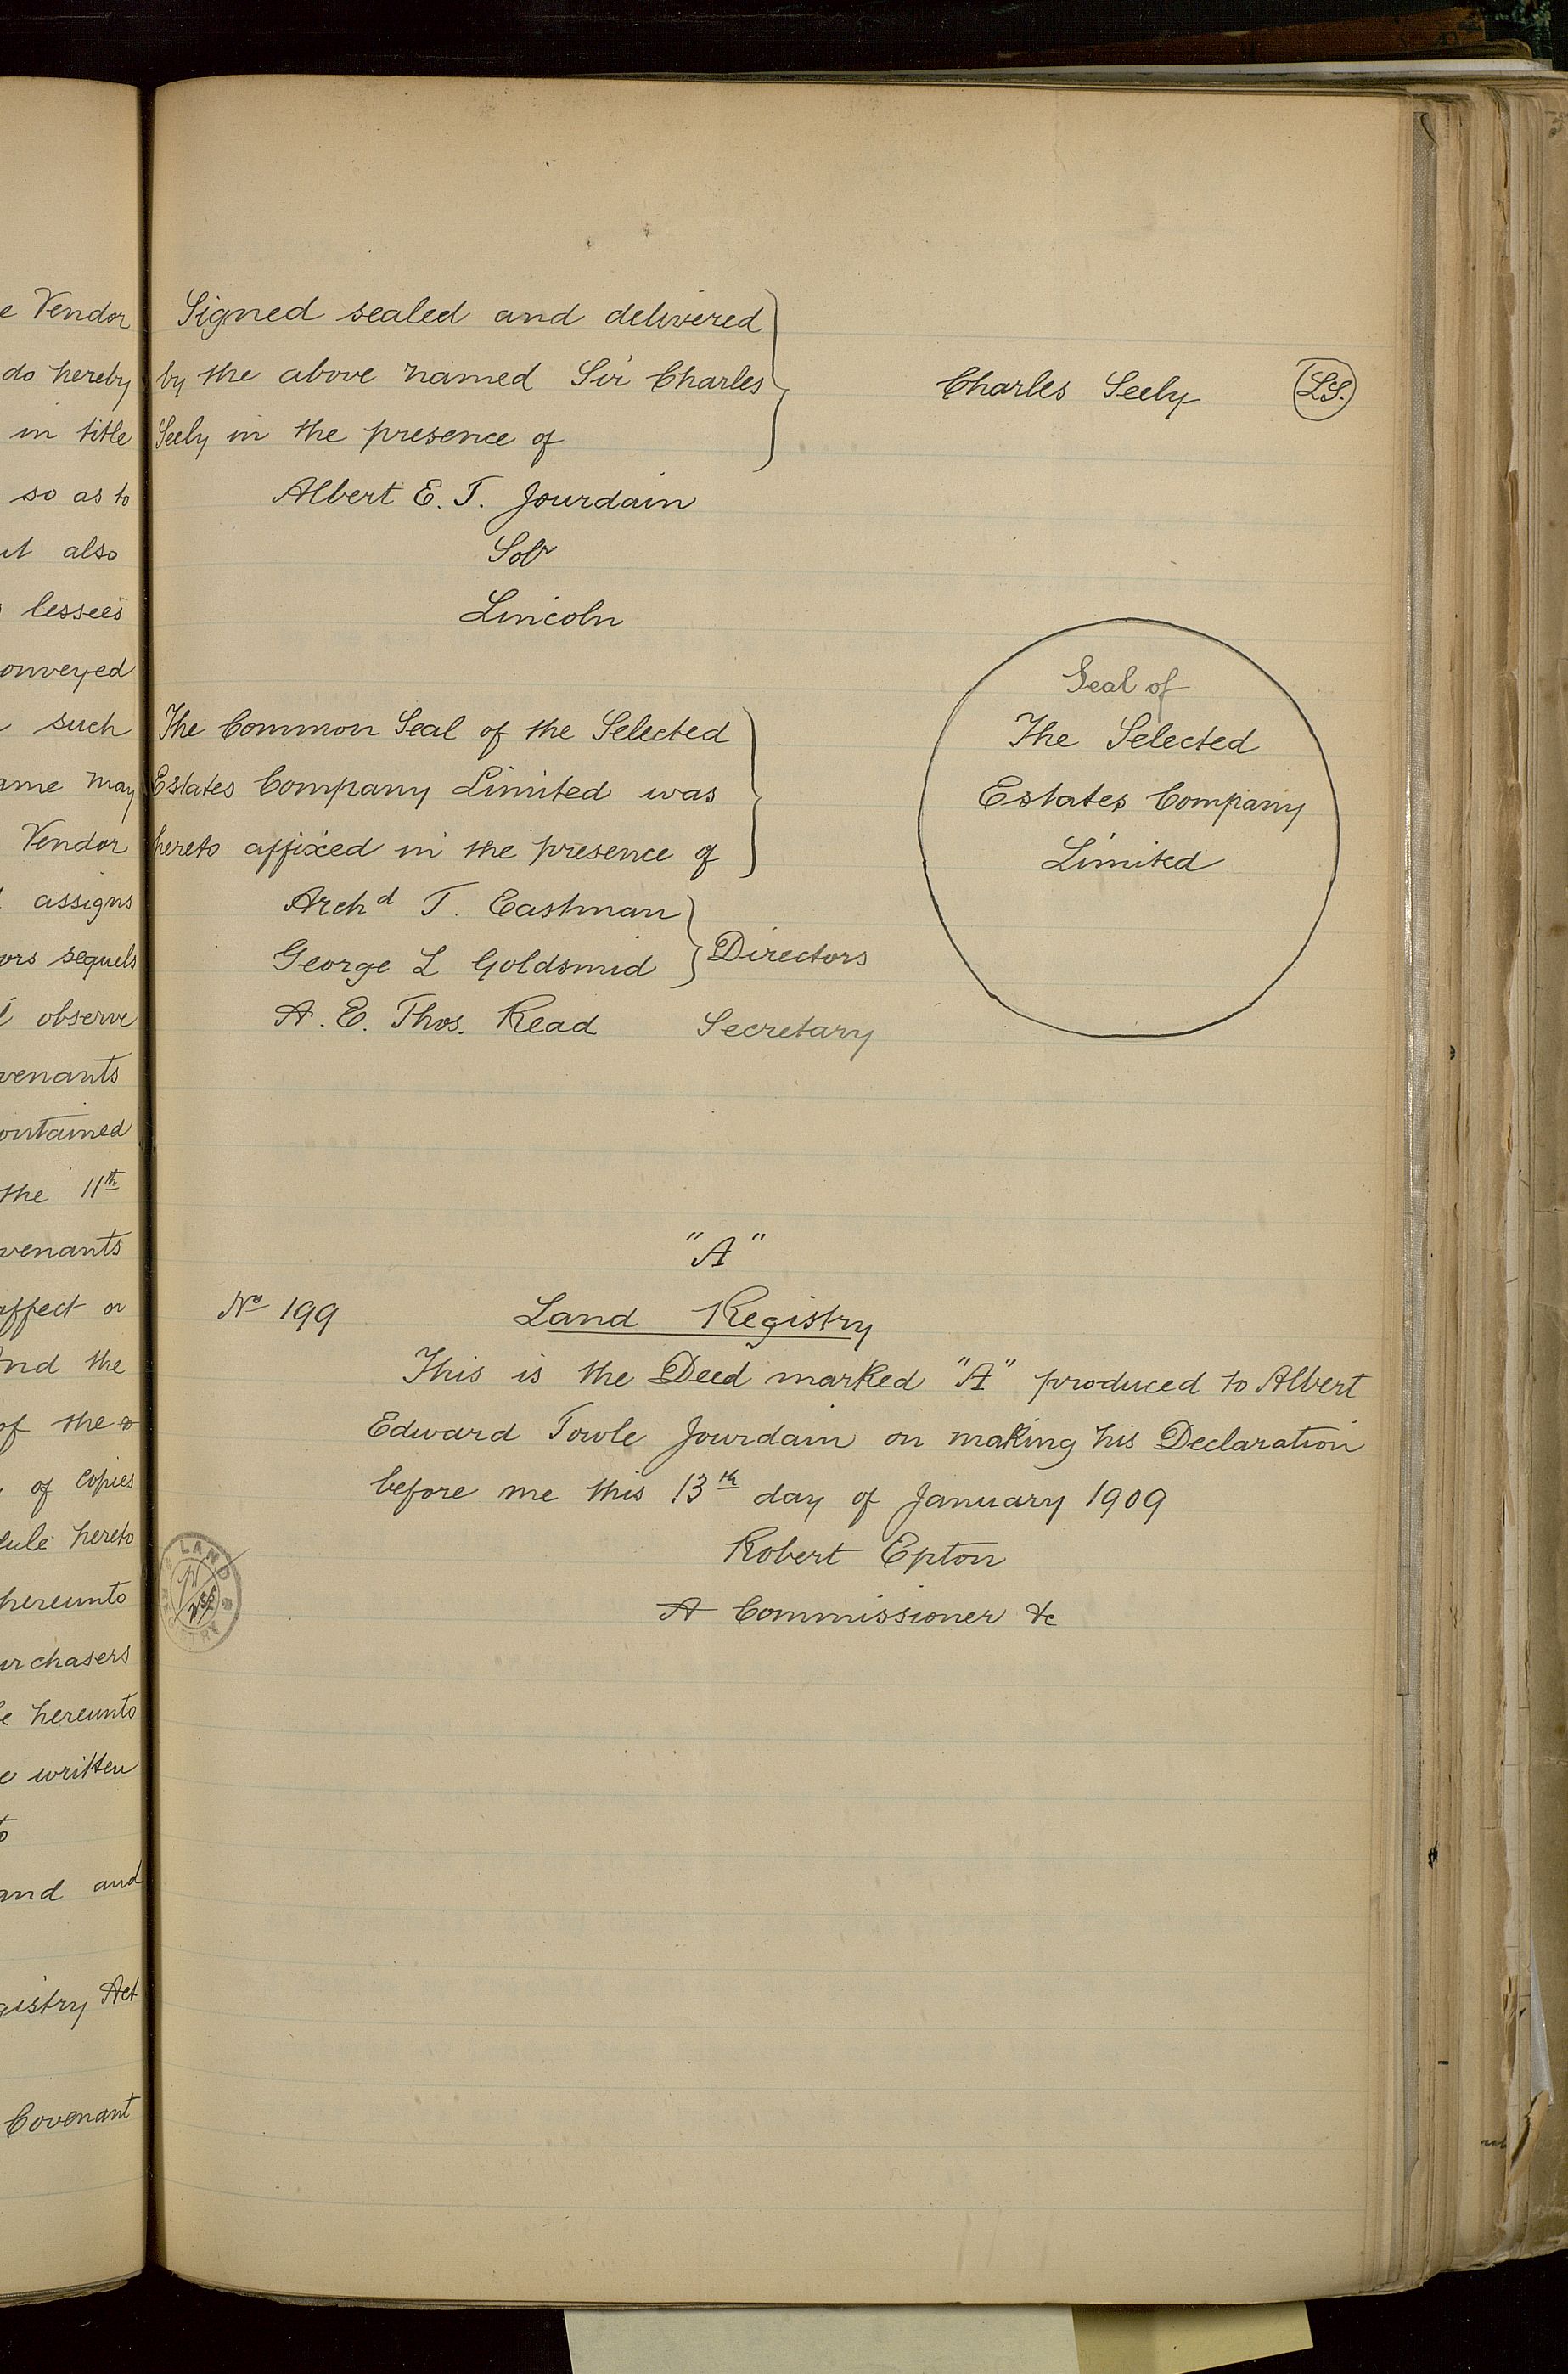 e Vendor
do hereby
in title
so as to
also
lessees
onveyed
such
ame may
Vendor
assigns
ors sequels
observe
venants
ontained
the 11th
venants
affect or
nd the
of the
of copies
ule hereto
hereunto
urchasers
e hereunto
e written
and and
gistry Act
Covenant
Signed sealed and delivered
by the above named Sir Charles
Seely in the presence of
Charles Seely L.S.
Albert E. T. Jourdain
Solr
Lincoln
The Common Seal of the Selected
Estates Company Limited was
hereto affixed in the presence of
Archd T. Eastman
George L Goldsmid
Directors
A. E. Thos. Read Secretary
Seal of
The Selected
Estates Company
Limited
"A"
No 199 Land Registry
This is the Deed marked "A" produced to Albert
Edward Towle Jourdain on making his Declaration
before me this 13th day of January 1909
Robert Epton
A Commissioner &c
LAND